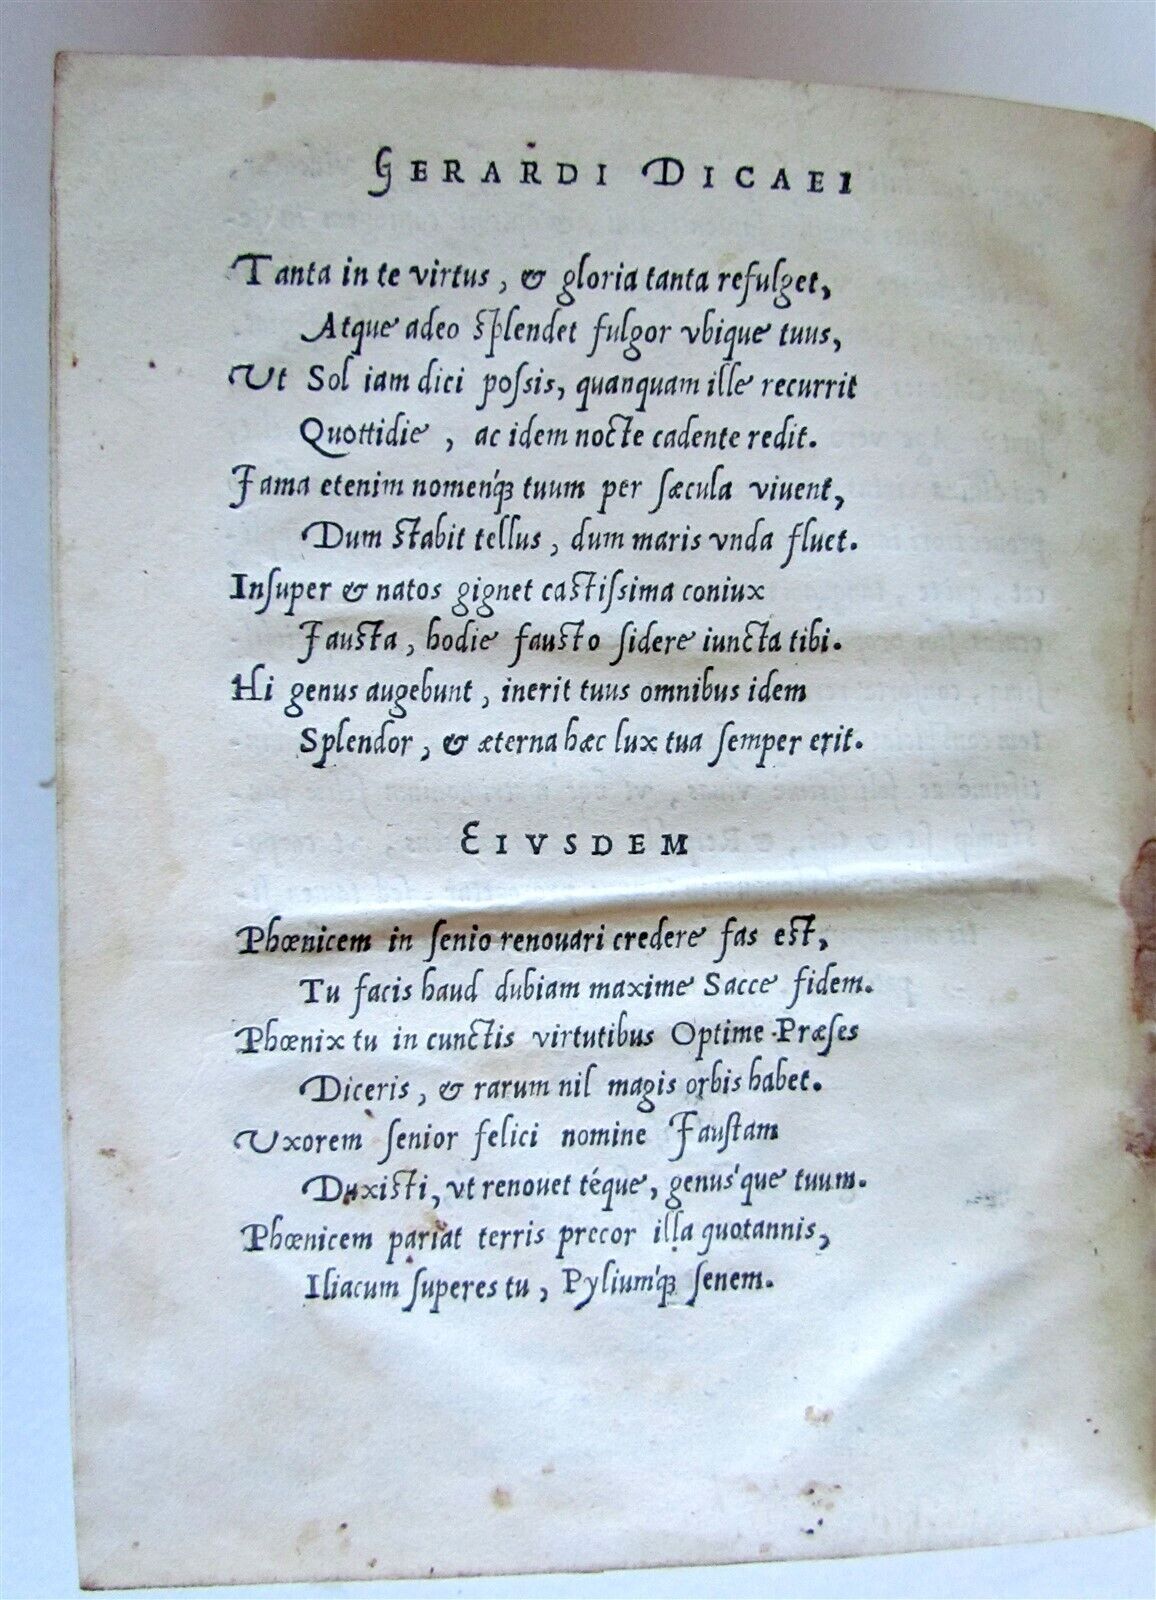 GERARDI DICAEI
Tanta in te virtus, & gloria tanta refulget,
Atque adeo splendet fulgor vbique tuus,
Ut Sol iam dici poſsis, quanquam ille recurrit
Quottidie, ac idem nocte cadente redit.
Fama etenim nomen'q; tuum per ſæcula viuent,
Dum stabit tellus, dum maris vnda fluet.
Inſuper & natos gignet castiſsima coniux
Fausta, hodie fausto ſidere iuncta tibi.
Hi genus augebunt, inerit tuus omnibus idem
Splendor, & æterna hæc lux tua ſemper erit.
EIVSDEM
Phœnicem in ſenio renouari credere fas est,
Tu facis haud dubiam maxime Sacce fidem.
Phœnix tu in cunctis virtutibus Optime Præſes
Diceris, & rarum nil magis orbis habet.
Uxorem ſenior felici nomine Fauſtam
Duxisti, vt renouet téque, genus'que tuum.
Phœnicem pariat terris precor illa quotannis,
Iliacum ſuperes tu, Pylium'q; ſenem.